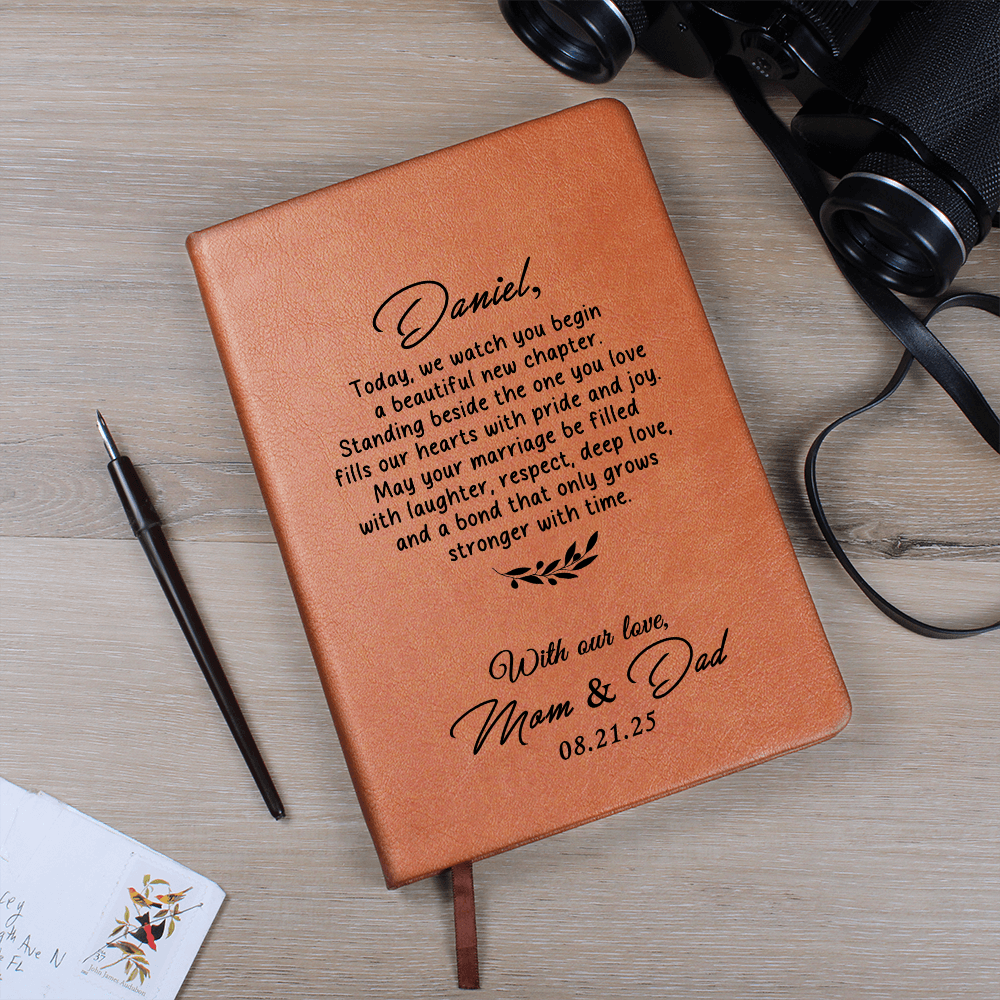 Daniel,
Today, we watch you begin
a beautiful new chapter.
Standing beside the one you love
fills our hearts with pride and joy.
May your marriage be filled
with laughter, respect, deep love,
and a bond that only grows
stronger with time.
With our love,
Mom & Dad
08.21.25
Ave N
FL
37
John James Audubon